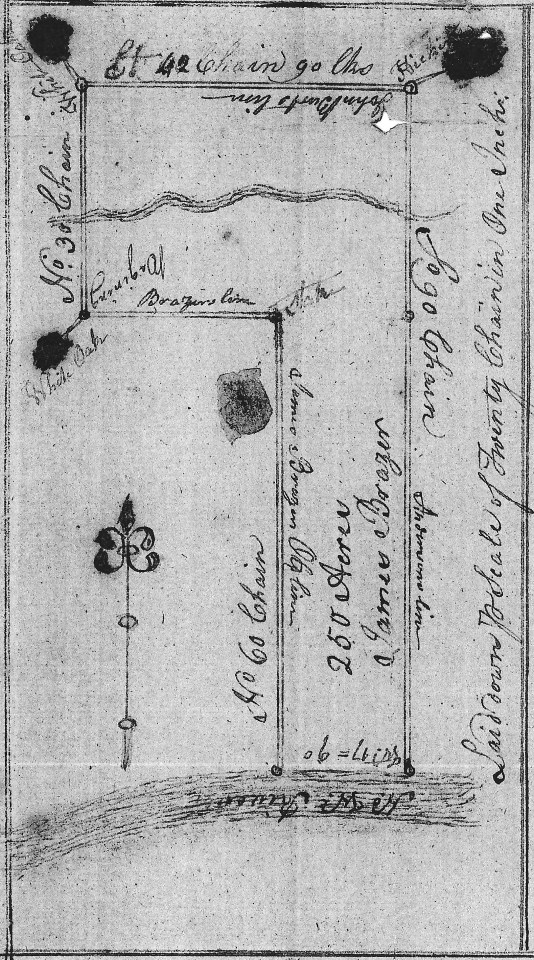 Et 42 Chain 90 lks
Hickri
John Burts line
No 30 Chain
Begining
White Oak
Brazers line
Stake
So 90 Chain
James Brazers Old line
No 60 Chain
250 Acres
James Brazer
line
Wt 17 = 90
River
Laid down Pr Scale of Twenty Chain in One Inch: